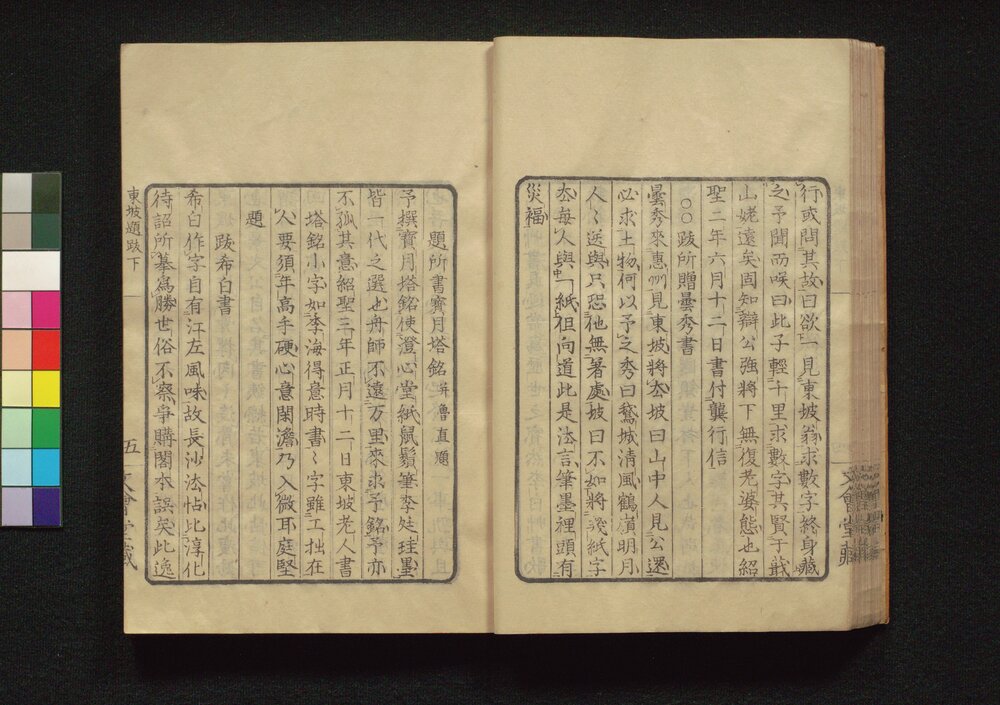 行或問其故曰欲一見東坡翁求數字終身藏
之予聞而喚曰此子輕千里求數字其賢于戢
山姥遠矣固知辯公強將下無復老婆態也紹
聖二年六月十二日書付龔行信
○○跋所贈曇秀書
曇秀來惠州見東坡將厺坡曰山中人見公還
必求土物何以予之秀曰鵞城清風鶴嶺明月
人〻送與只恐他無著處坡曰不如將幾紙字
厺每人與一紙但向道此是法言筆墨裡頭有
災福
文會堂藏
題所書寶月塔銘 并魯直題
予撰寶月塔銘使澄心堂紙鼠鬚筆李廷珪墨
皆一代之選也舟師不遠万里來求予銘予亦
不孤其意紹聖三年正月十二日東坡老人書
塔銘小字如李海得意時書〻字雖工拙在
人要須年高手硬心意閑澹乃入微耳庭堅
題
跋希白書
希白作字自有江左風味故長沙法帖比淳化
待詔所摹為勝世俗不察爭購閣本誤矣此逸
東坡題跋下
五
文會堂藏